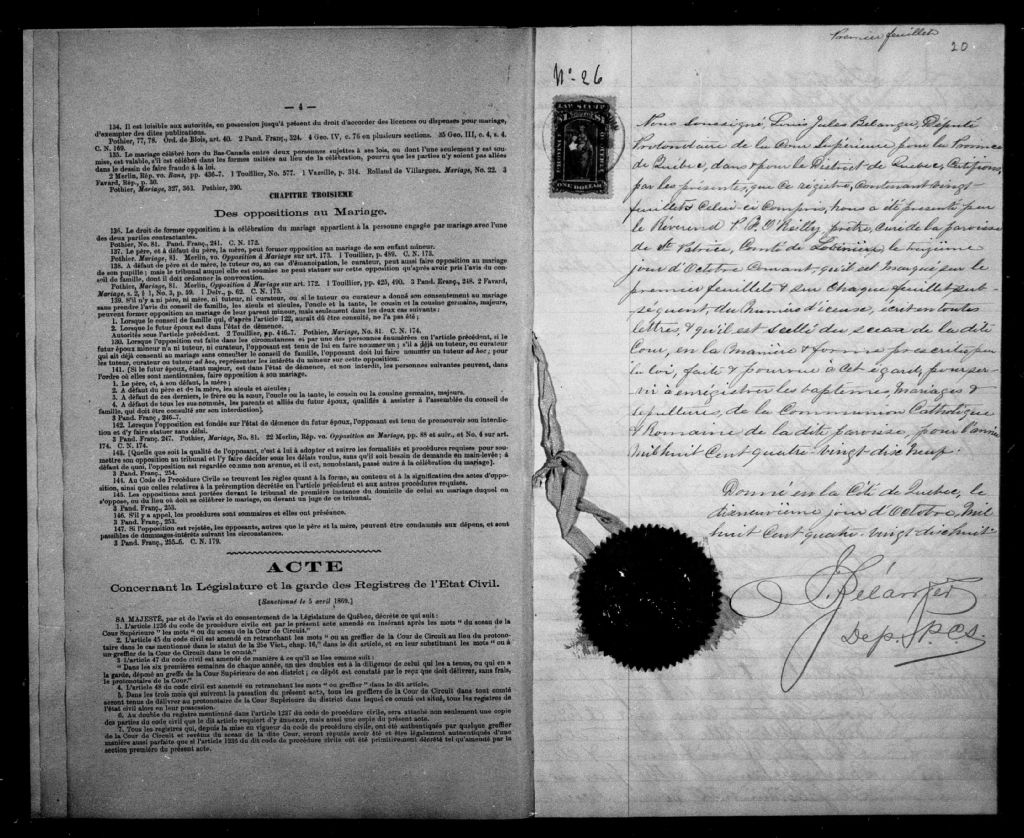 — 4 —
134. Il est loisible aux autorités, en possession jusqu'à présent du droit d'accorder des licences ou dispenses pour mariage,
d'exempter des dites publications.
Pothier, 77, 78. Ord. de Blois, art. 40. 2 Pand. Franç., 324. 4 Geo. IV, c. 76 en plusieurs sections. 35 Geo. III, c. 4, s. 4.
C. N. 169.
135. Le mariage célébré hors du Bas-Canada entre deux personnes sujettes à ses lois, ou dont l'une seulement y est sou-
mise, est valable, s'il est célébré dans les formes usitées au lieu de la célébration, pourvu que les parties n'y soient pas allées
dans le dessein de faire fraude à la loi.
2 Merlin, Rép. vo. Bans, pp. 436-7. 1 Touillier, No. 577. 1 Vazille, p. 314. Rolland de Villargues. Mariage, No. 22. 3
Favard, Rép., p. 30.
Pothier, Mariage, 327, 363. Pothier, 390.
CHAPITRE TROISIEME
Des oppositions au Mariage.
136. Le droit de former opposition à la célébration du mariage appartient à la personne engagée par mariage avec l'une
des deux parties contractantes.
Pothier, No. 81. Pand. Franç., 241. C. N. 172.
137. Le père, et à défaut du père, la mère, peut former opposition au mariage de son enfant mineur.
Pothier, Mariage, 81. Merlin, Vo. Opposition à Mariage sur art. 173. 1 Touillier, p. 489. C. N. 173.
138. A défaut de père et de mère, le tuteur ou, au cas d'émancipation, le curateur, peut aussi faire opposition au mariage
de son pupille; mais le tribunal auquel elle est soumise ne peut statuer sur cette opposition qu'après avoir pris l'avis du con-
seil de famille, dont il doit ordonner la convocation.
Pothier, Mariage, 81. Merlin, Opposition à Mariage sur art. 172. 1 Touillier, pp. 425, 490. 3 Pand. Franç., 248. 2 Favard,
Mariage, s. 2, § 1, No. 3, p. 59. 1 Delv., p. 62. C. N. 175.
139. S'il n'y a ni père, ni mère, ni tuteur, ni curateur, ou si le tuteur ou curateur a donné son consentement au mariage
sans prendre l'avis du conseil de famille, les aïeuls et aïeules, l'oncle et la tante, le cousin et la cousine germains, majeurs,
peuvent former opposition au mariage de leur parent mineur, mais seulement dans les deux cas suivants:
1. Lorsque le conseil de famille qui, d'après l'article 122, aurait dû être consulté, ne l'a pas été;
2. Lorsque le futur époux est dans l'état de démence.
Autorités sous l'article précédent. 2 Touillier, pp. 446-7. Pothier, Mariage, No. 81. C. N. 174.
130. Lorsque l'opposition est faite dans les circonstances et par une des personnes énumérées en l'article précédent, si le
futur époux mineur n'a ni tuteur, ni curateur, l'opposant est tenu de lui en faire nommer un; s'il a déjà un tuteur, ou curateur
qui ait déjà consenti au mariage sans consulter le conseil de famille, l'opposant doit lui faire nommer un tuteur ad hoc; pour
les tuteur, curateur ou tuteur ad hoc, représenter les intérêts du mineur sur cette opposition.
141. [Si le futur époux, étant majeur, est dans l'état de démence, et non interdit, les personnes suivantes peuvent, dans
l'ordre où elles sont mentionnées, faire opposition à son mariage.
1. Le père, et, à son défaut, la mère;
2. A défaut du père et de la mère, les aïeuls et aïeules;
3. A défaut de ces derniers, le frère ou la sœur, l'oncle ou la tante, le cousin ou la cousine germains, majeurs.
4. A défaut de tous les sus-nommés, les parents et alliés du futur époux, qualifiés à assister à l'assemblée du conseil de
famille, qui doit être consulté sur son interdiction].
3 Pand. Franç., 246-7.
142. Lorsque l'opposition est fondée sur l'état de démence du futur époux, l'opposant est tenu de promouvoir son interdic-
tion et d'y faire statuer sans délai.
3 Pand. Franç. 247. Pothier, Mariage, No. 81. 22 Merlin, Rép. vo. Opposition au Mariage, pp. 88 et suiv., et No. 4 sur art.
174. C. N. 174.
143. [Quelle que soit la qualité de l'opposant, c'est à lui à adopter et suivre les formalités et procédures requises pour sou-
mettre son opposition au tribunal et l'y faire décider sous les délais voulus, sans qu'il soit besoin de demande en main-levée; à
défaut de quoi, l'opposition est regardée comme non avenue, et il est, nonobstant, passé outre à la célébration du mariage].
3 Pand. Franç., 254.
144. Au Code de Procédure Civile se trouvent les règles quant à la forme, au contenu et à la signification des actes d'oppo-
sition, ainsi que celles relatives à la péremption décrétée en l'article précédent et aux autres procédures requises.
145. Les oppositions sont portées devant le tribunal de première instance du domicile de celui au mariage duquel on
s'oppose, ou du lieu où doit se célébrer le mariage, ou devant un juge de ce tribunal.
3 Pand. Franç., 253.
146. S'il y a appel, les procédures sont sommaires et elles ont préséance.
3 Pand. Franç., 253.
147. Si l'opposition est rejetée, les opposants, autres que le père et la mère, peuvent être condamnés aux dépens, et sont
passibles de dommages-intérêts suivant les circonstances.
3 Pand. Franç., 255-6. C. N. 179.
ACTE
Concernant la Législature et la garde des Registres de l'Etat Civil.
[Sanctionné le 5 avril 1869.]
SA MAJESTÉ, par et de l'avis et du consentement de la Législature de Québec, décrète ce qui suit:
1. L'article 1236 du code de procédure civile est par le présent acte amendé en insérant après les mots "du sceau de la
Cour Supérieure" les mots "ou du sceau de la Cour de Circuit."
2. L'article 45 du code civil est amendé en retranchant les mots "ou au greffier de la Cour de Circuit au lieu du protono-
taire dans le cas mentionné dans le statut de la 25e Vict., chap. 16," dans le dit article, et en leur substituant les mots "ou à
un greffier de la Cour de Circuit dans le comté."
3. L'article 47 du code civil est amendé de manière à ce qu'il se lise comme suit:
"Dans les six premières semaines de chaque année, un des doubles est à la diligence de celui qui les a tenus, ou qui en a
la garde, déposé au greffe de la Cour Supérieure de son district; ce dépôt est constaté par le reçu que doit délivrer, sans frais,
le protonotaire de la Cour."
4. L'article 48 du code civil est amendé en retranchant les mots "ou greffier" dans le dit article.
5. Dans les trois mois qui suivront la passation du présent acte, tous les greffiers de la Cour de Circuit dans tout comté
seront tenus de délivrer au protonotaire de la Cour Supérieure du district dans lequel ce comté est situé, tous les registres de
l'état civil alors en leur possession.
6. Au double du registre mentionné dans l'article 1237 du code de procédure civile, sera attaché non seulement une copie
des parties du code civil que le dit article requiert d'y annexer, mais aussi une copie du présent acte.
7. Tous les registres qui, depuis la mise en vigueur du code de procédure civile, ont été authentiqués par quelque greffier
de la Cour de Circuit et revêtus du sceau de la dite Cour, seront réputés avoir été et être légalement authentiqués d'une
manière aussi parfaite que si l'article 1236 du dit code de procédure civile eût été primitivement décrété tel qu'amendé par la
section première du présent acte.
Premier feuillet
20
No. 26
LAW STAMP
ONE DOLLAR
Nous soussigné, Louis Jules Belanger, Député
Protonotaire de la Cour Supérieure pour la Province
de Québec, dans & pour le District de Quebec, Certifions,
par les présentes, que ce registre, contenant vingt-
feuillets celui-ci compris, nous a été présenté par
le Révérend P. B. O'Reilly, prêtre, curé de la paroisse
de St Patrice, Comté de Lotbinière, le treizième
jour d'Octobre courant, qu'il est marqué sur le
premier feuillet & sur chaque feuillet sub-
séquent, du numéro d'iceux, écrit en toutes
lettres, & qu'il est scellé du sceau de la dite
Cour, en la manière & forme prescrites par
la loi, faite & pourvue à cet égard, pour ser-
vir à enrégistrer les baptemes, mariages &
sepultures, de la Communion Catholique
& Romaine de la dite paroisse, pour l'année
mil huit cent quatre vingt dix neuf.
Donné en la Cité de Quebec, le
dixneuvième jour d'Octobre, mil
huit cent quatre-vingt dix huit
J. Bélanger
Dep. P.C.S.